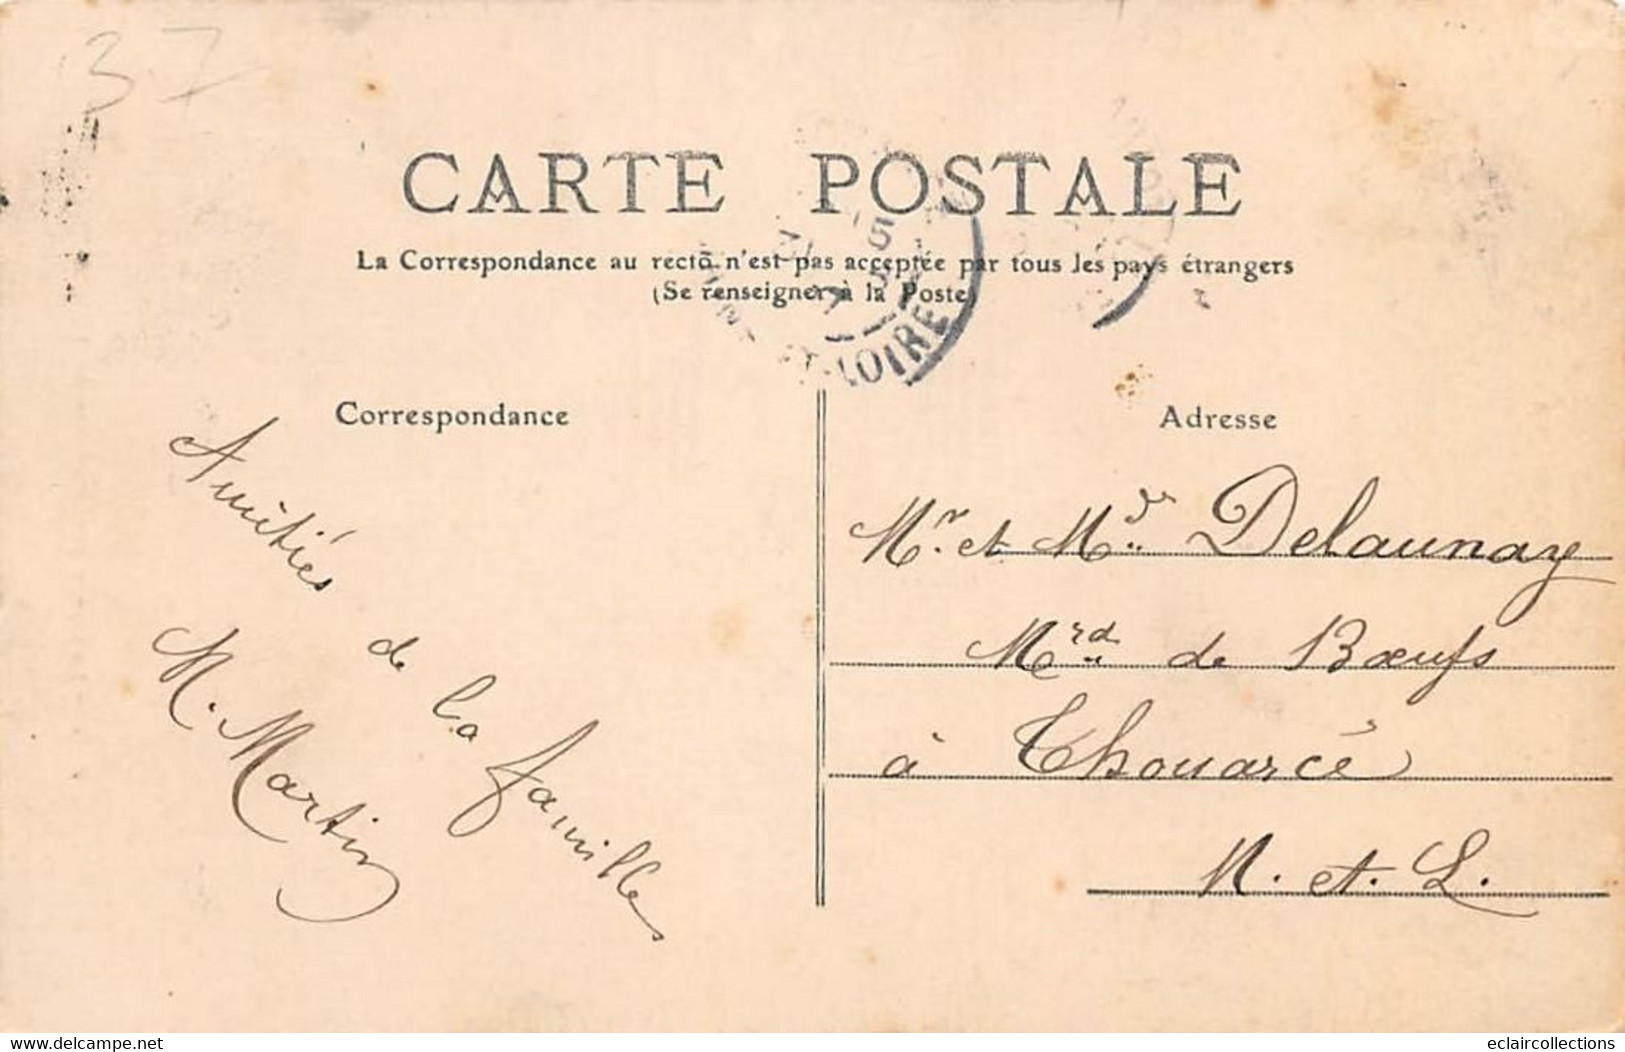 37
CARTE POSTALE
La Correspondance au recto n'est pas acceptée par tous les pays étrangers
(Se renseigner à la Poste)
ET-LOIRE
Correspondance
Adresse
Amitiés
de la famille
M. Martin
Mr. et Md. Delaunay
Mrd de Bœufs
à Thouarcé
M. et. L.
www.delcampe.net
eclaircollections